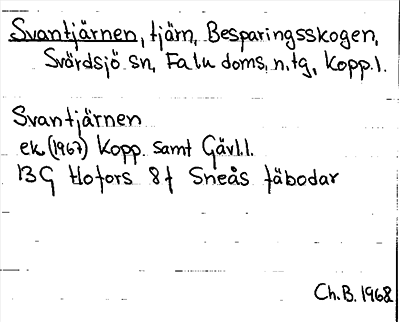 Svantjärnen, tjärn, Besparingsskogen,
Svärdsjö sn, Falu doms. n. tg, Kopp. l.
Svantjärnen
ek (1967) Kopp. samt Gävl. l.
13G Hofors 8f Sneås fäbodar
Ch. B. 1968